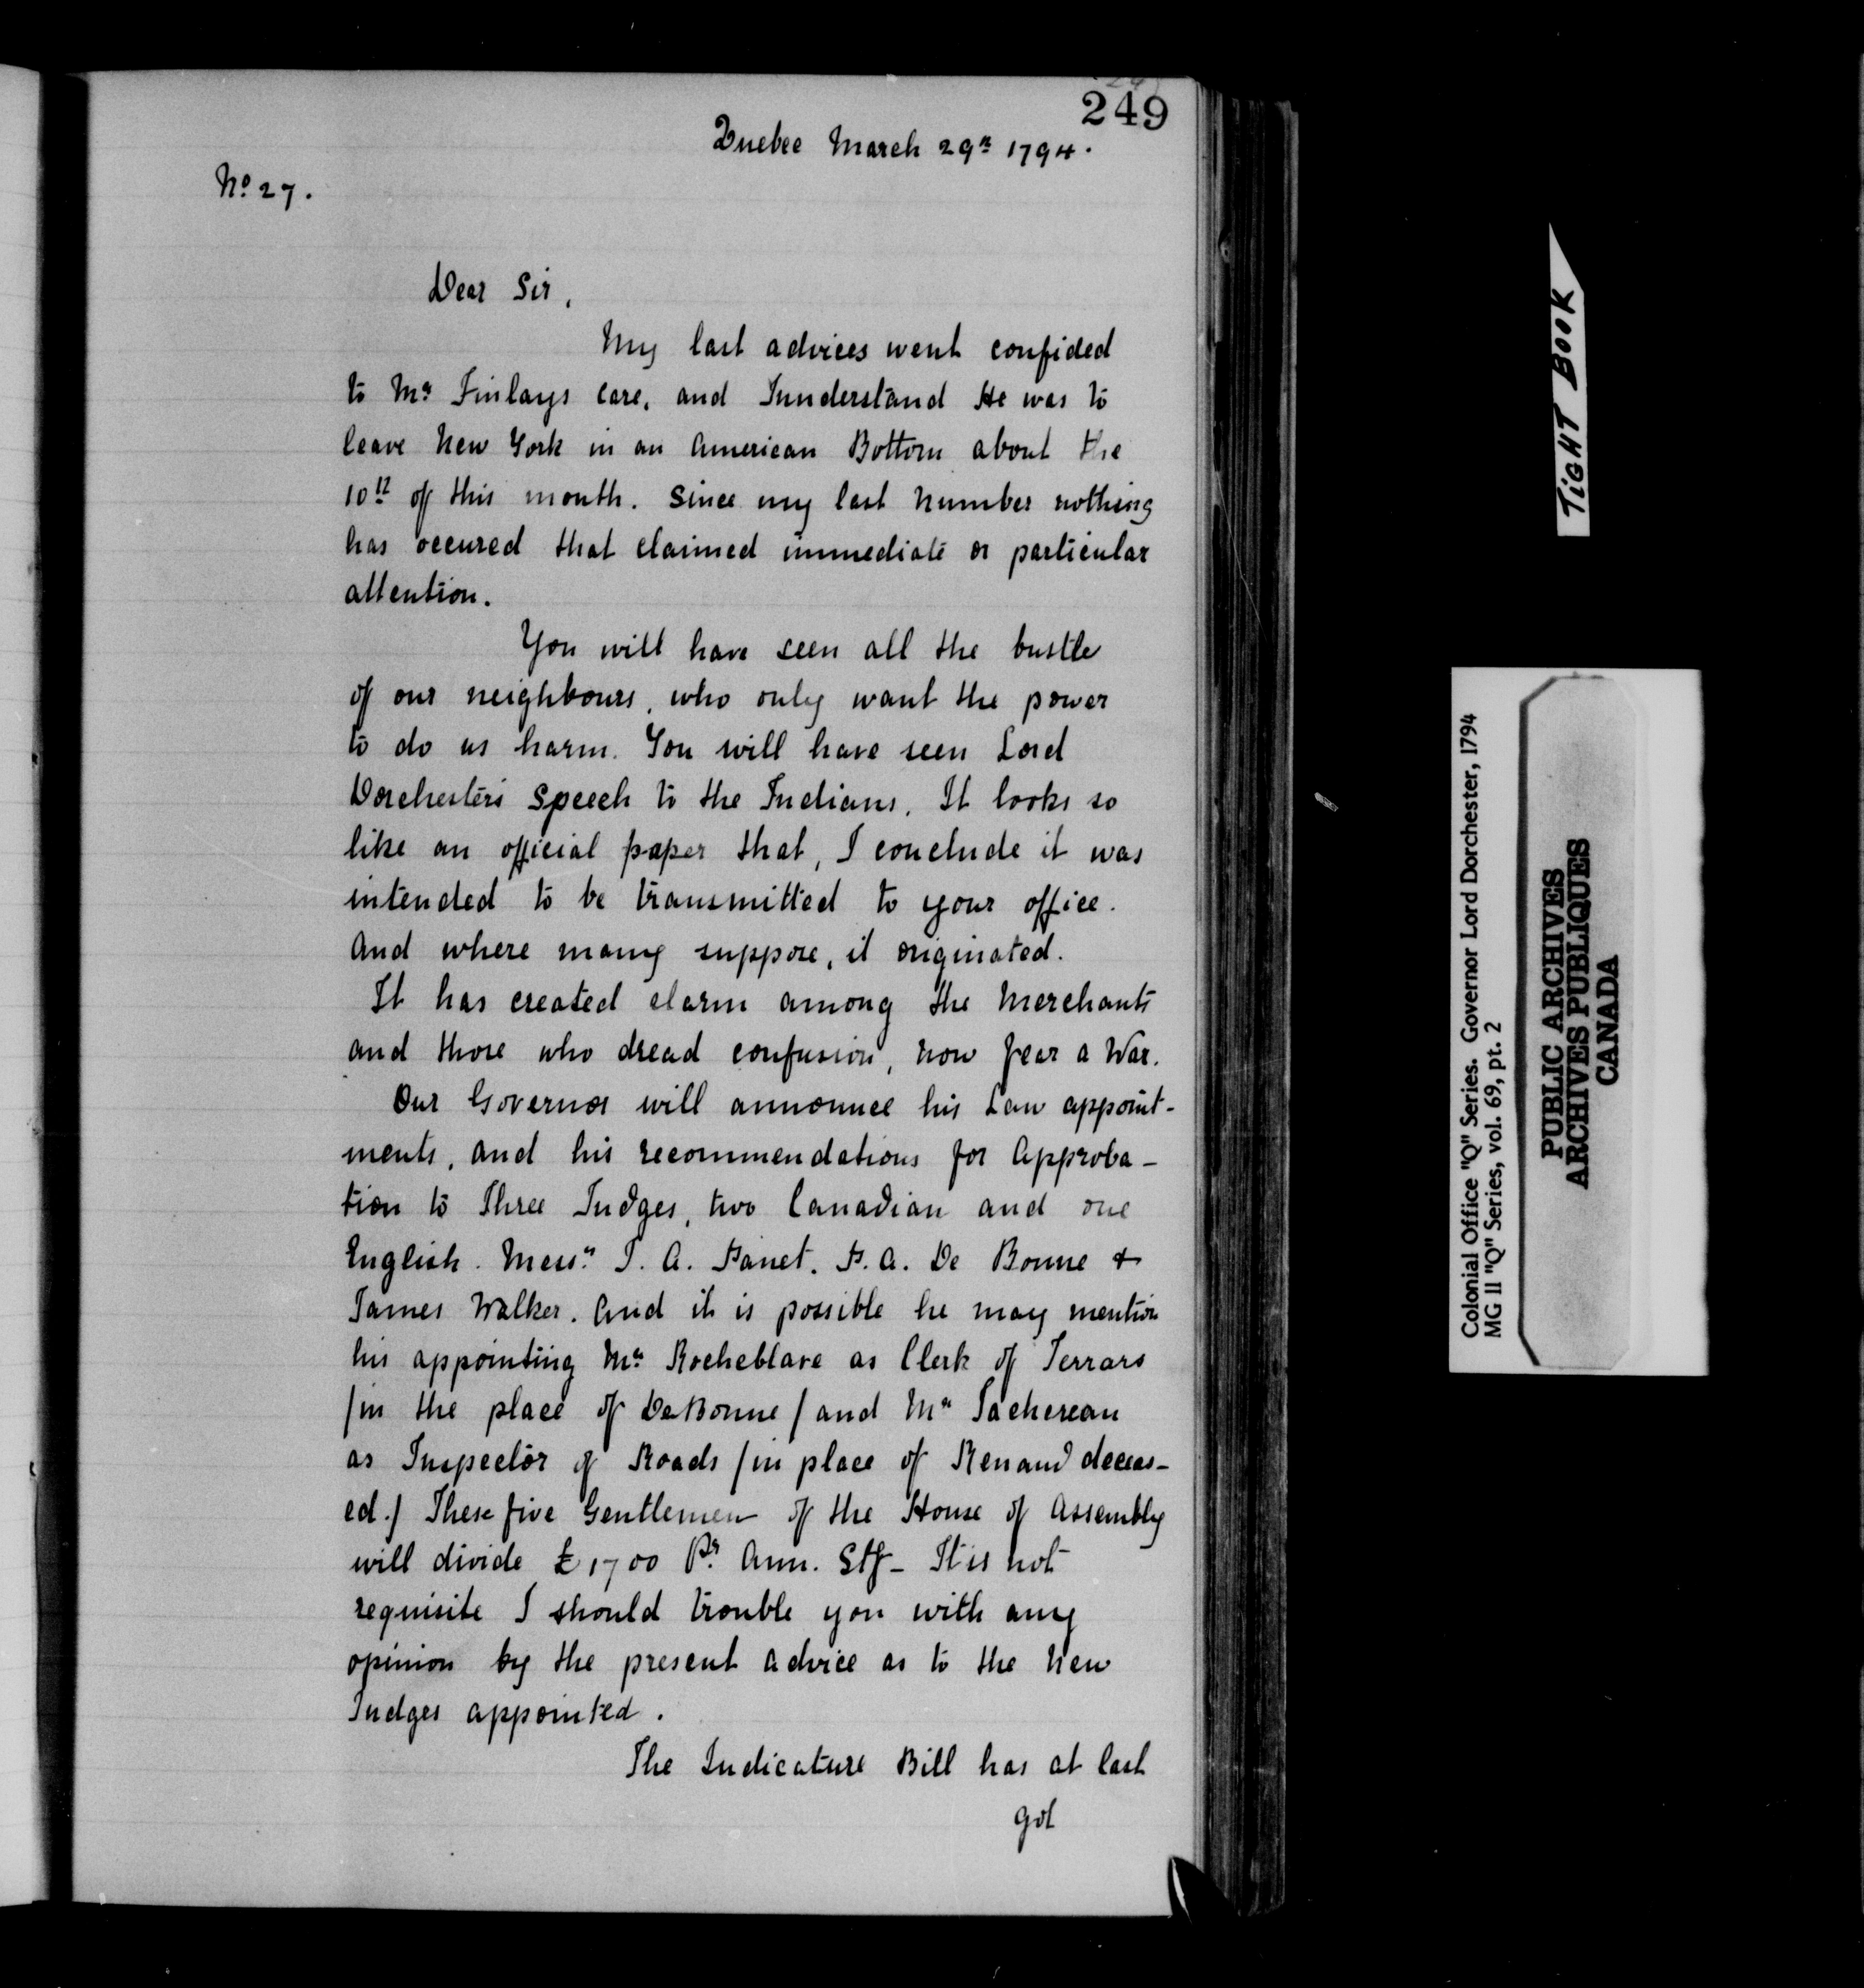 249
Quebec March 29th 1794.
No 27.
Dear Sir,
My last advices went confided
to Mr Finlays care, and I understand He was to
leave New York in an American Bottom about the
10th of this month. Since my last Number nothing
has occured that claimed immediate or particular
attention.
You will have seen all the bustle
of our neighbours, who only want the power
to do us harm. You will have seen Lord
Dorchesters Speech to the Indians. It looks so
like an official paper that, I conclude it was
intended to be transmitted to your office.
And where many suppose, it originated.
It has created alarm among the Merchants
and those who dread confusion, now fear a War.
Our Governor will announce his Law appoint-
ments, and his recommendations for Approba-
tion to Three Judges, two Canadian and one
English. Messrs J. A. Panet. P. A. De Bonne &
James Walker. And it is possible he may mention
his appointing Mr Rocheblave as Clerk of Terrars
/in the place of DeBonne/ and Mr Tachereau
as Inspector of Roads /in place of Renaud deceas-
ed./ These five Gentlemen of the House of Assembly
will divide £1700 Pr Ann. Stg- It is not
requisite I should trouble you with any
opinion by the present advice as to the New
Judges appointed.
The Judicature Bill has at last
got
TIGHT BOOK
Colonial Office "Q" Series. Governor Lord Dorchester, 1794
MG 11 "Q" Series, vol. 69, pt. 2
PUBLIC ARCHIVES
ARCHIVES PUBLIQUES
CANADA